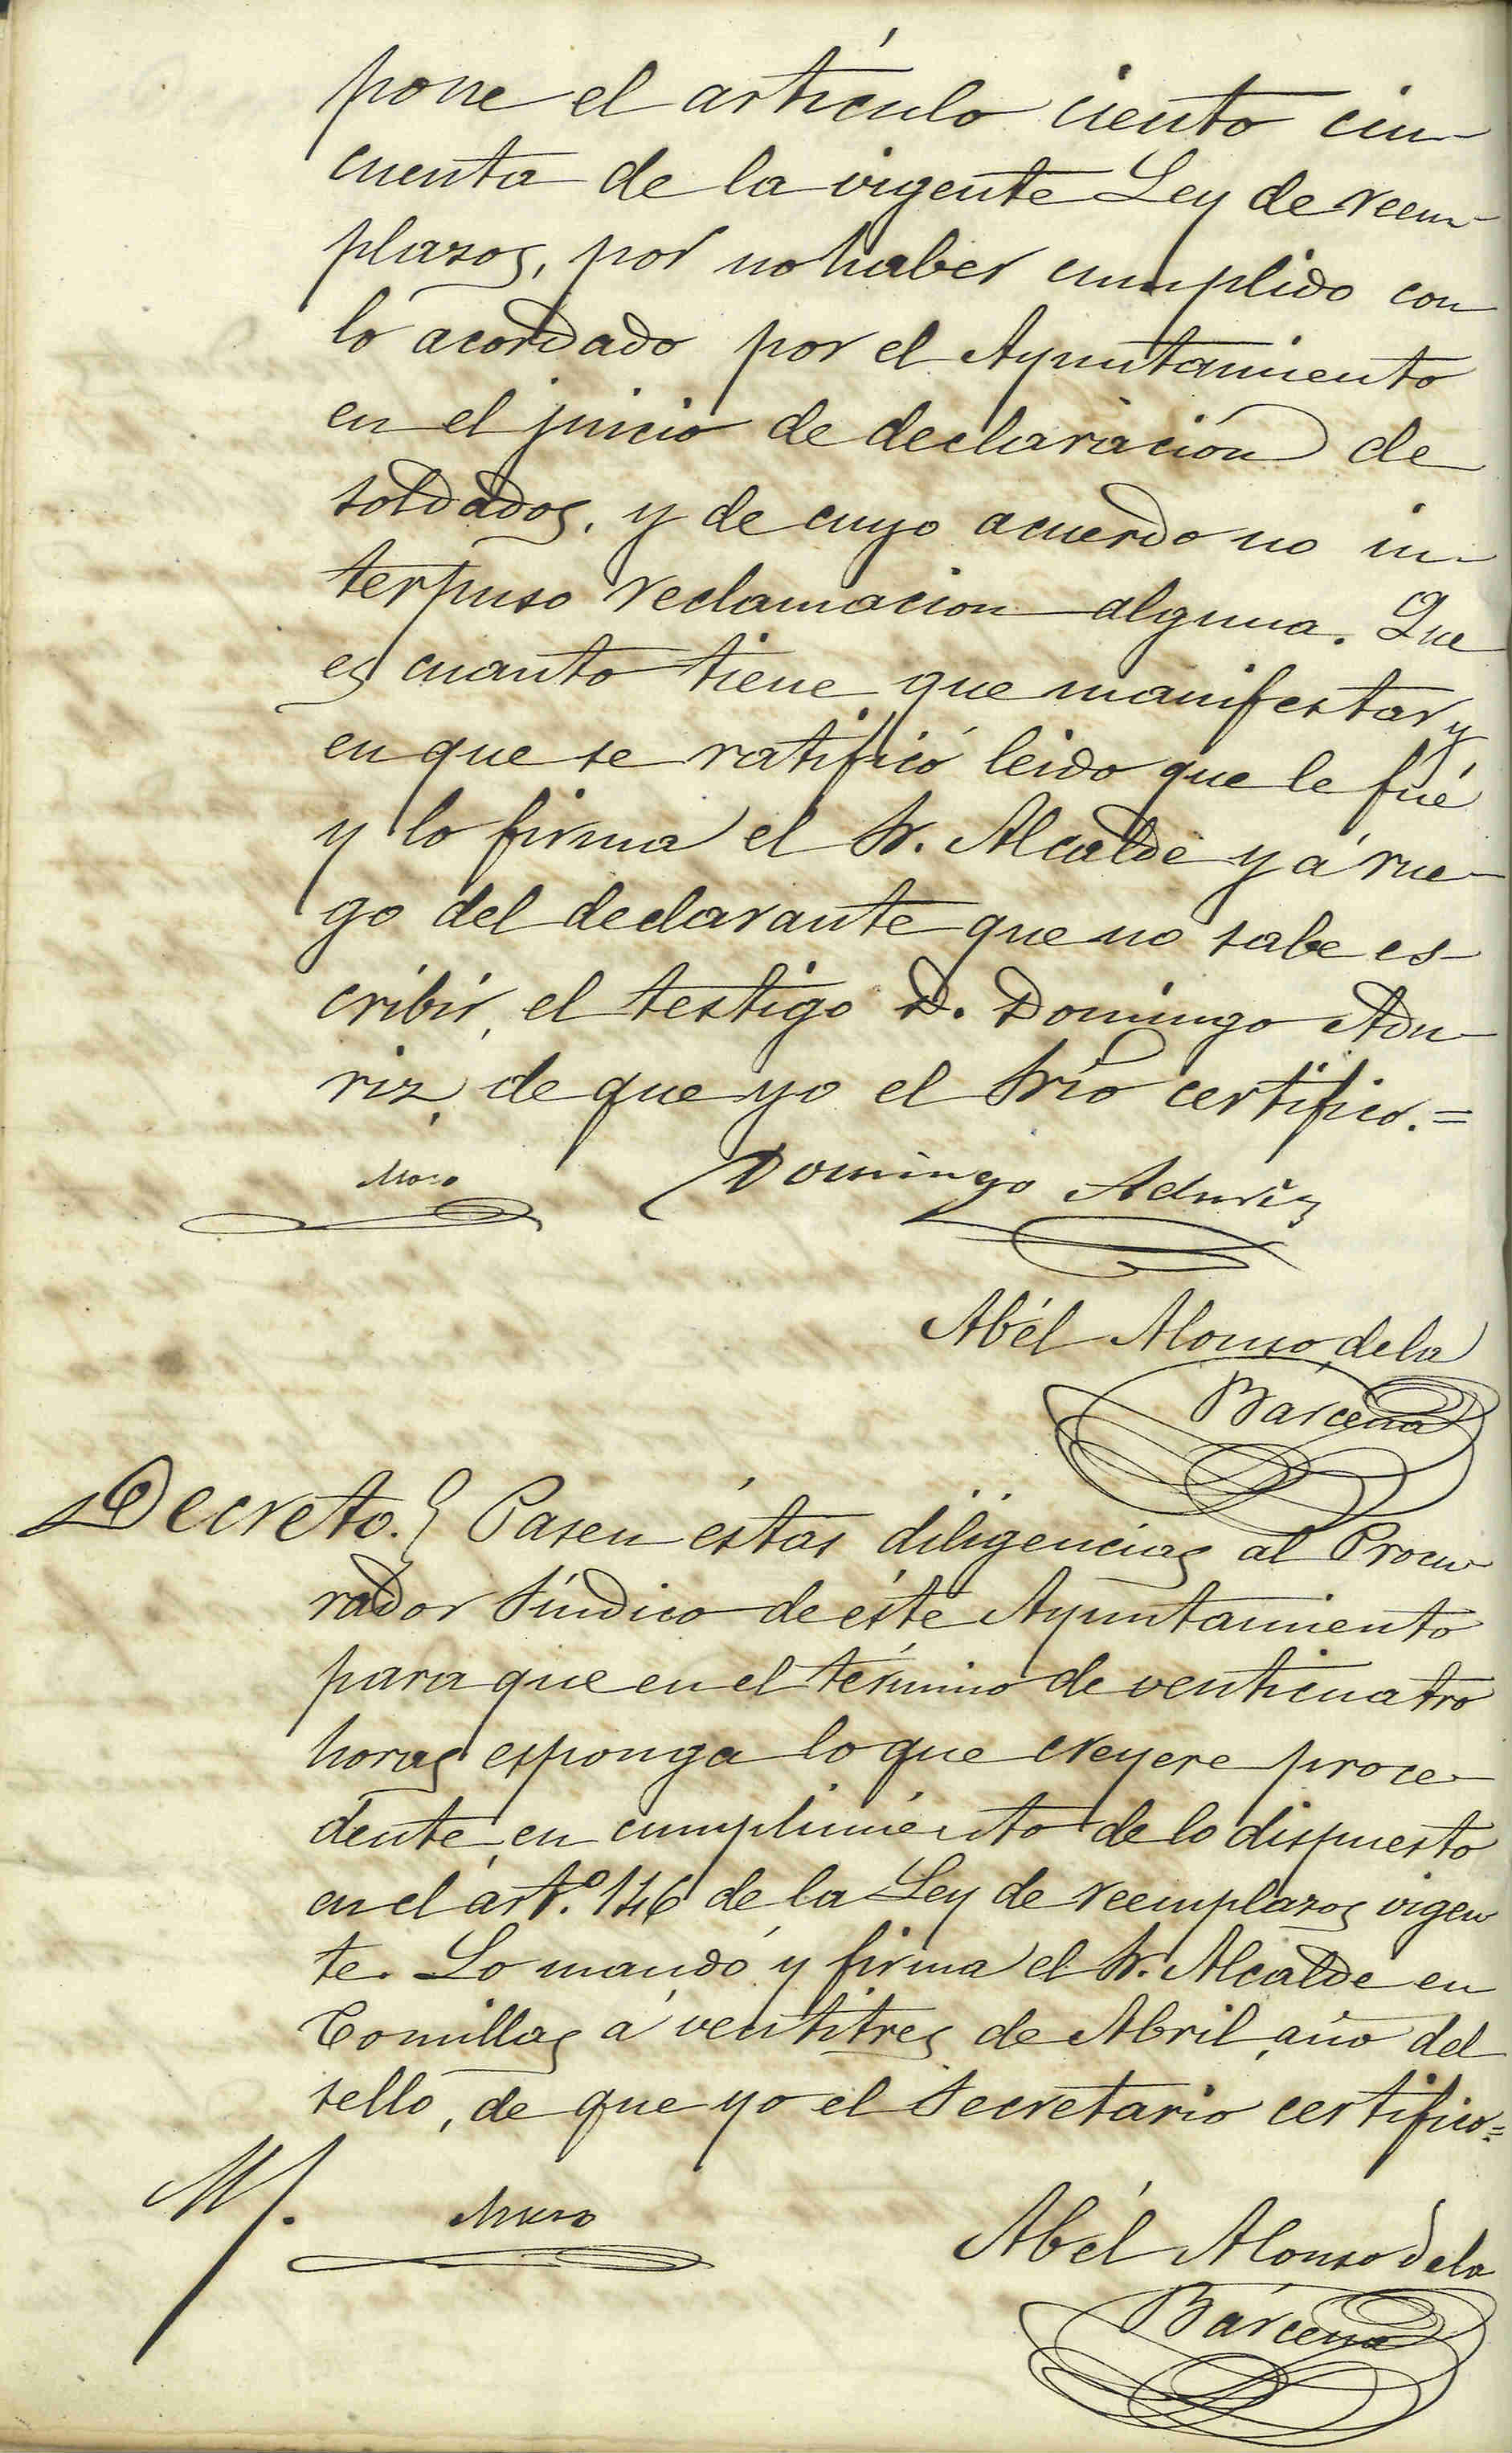 pone el artículo ciento cin-
cuenta de la vigente Ley de reem-
plazos, por no haber cumplido con
lo acordado por el Ayuntamiento
en el juicio de declaración de
soldados, y de cuyo acuerdo no in-
terpuso reclamacion alguna. Que
es cuanto tiene que manifestar y
en que se ratificó leido que le fué
y lo firma el Sr. Alcalde y á rue-
go del declarante que no sabe es-
cribir, el testigo D. Domingo Adu-
riz, de que yo el Srio certifico.=
Domingo Aduriz
Abél Alonso de la
Bárcena
Decreto. Pasen éstas diligencias al Procu-
rador Síndico de éste Ayuntamiento
para que en el término de venticuatro
horas esponga lo que creyere proce-
dente, en cumplimiento de lo dispuesto
en el artº. 146 de la Ley de reemplazos vigen-
te. Lo mandó y firma el Sr. Alcalde en
Comillas á ventitres de Abril, año del
sello, de que yo el Secretario certifico=
Abél Alonso de la
Bárcena